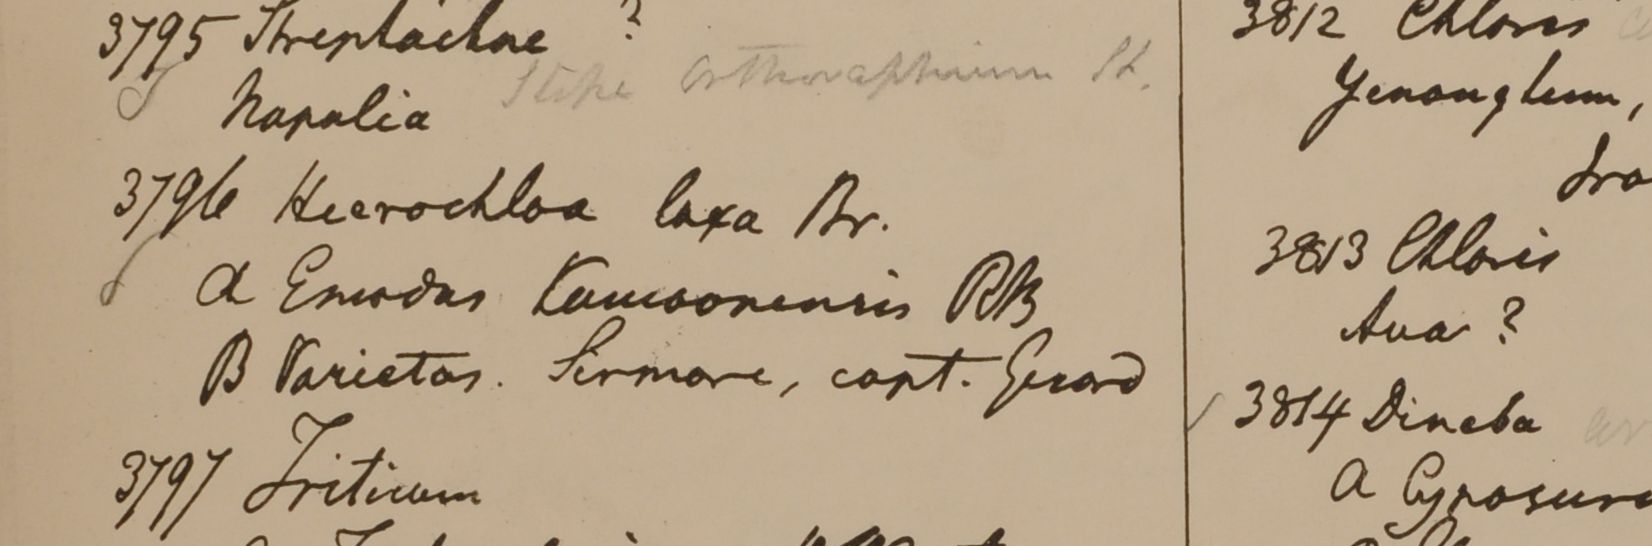 3795 Streptachne ?
Stipa Orthoraphium St.
Napalia
3796 Hierochloa laxa Br.
a Emodus Kamoonensis RB
B Varietas. Sirmore, capt. Gerard
3797 Triticum
3812 Chloris
Yenangheum,
3813 Chloris
Ava ?
3814 Dineba
a Cynosuro